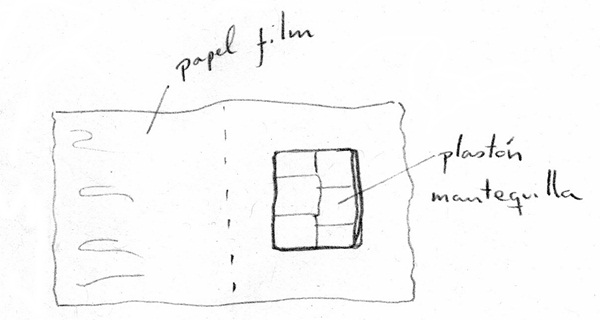 papel film
plastón
mantequilla